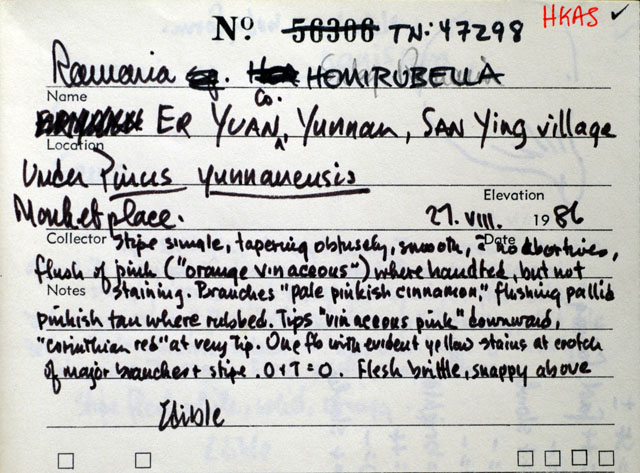 HKAS ✓
Nº 56306 TN: 47298
Ramaria HOMIRUBELLA
Name
ER YUAN Co., Yunnan, SAN Ying village
Location
Under Pinus yunnanensis
Elevation
Marketplace. 27. VIII. 1986
Collector Date
Stipe simple, tapering obtusely, smooth, no abortives,
flush of pink ("orange vinaceous") where handled, but not
Notes staining. Branches "pale pinkish cinnamon," flushing pallid
pinkish tan where rubbed. Tips "vinaceous pink" downward,
"corinthian red" at very tip. One fb with evident yellow stains at crotch
of major branches + stipe. O+T=0. Flesh brittle, snappy above
Edible